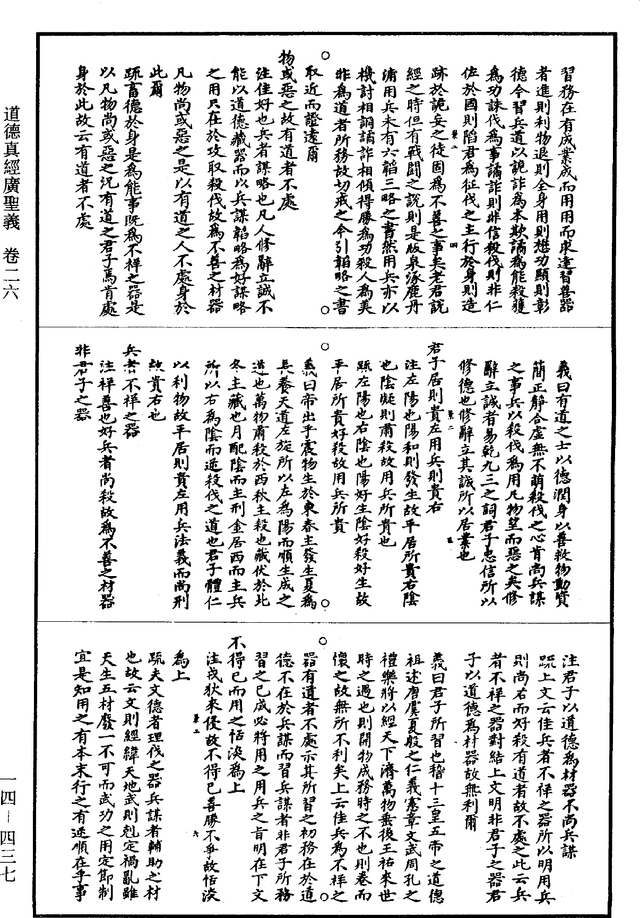 道德真經廣聖義 卷二六
習務在有成業成而用用而求達習善器
者進則利物退則全身用則懋功顯則彰
德今習兵道以詭詐為本欺譎為能殺獲
為功誅伐為事譎詐則非信殺伐則非仁
佐於國則陷君為征伐之主行於身則造
跡於詭妄之徒固為不善之事矣老君說
經之時但有戰鬭之說則是版泉涿鹿丹
浦用兵未有六韜三略之書然用兵亦以
機討相詶譎詐相傾得勝為功殺人為美
非為道者所務故切戒之今引韜略之書
取近而證遠爾
物或惡之故有道者不處
注佳好也兵者謀略也凡人修辭立誠不
能以道德藏器而以兵謀韜略為好謀略
之用只在於攻取殺伐故為不善之材器
凡物尚或惡之是以有道之人不處身於
此爾
疏畜德於身是為能事既為不祥之器是
以凡物尚或惡之況有道之君子焉肯處
身於此故云有道者不處
義曰有道之士以德潤身以善救物動資
簡正靜合虛無不萌殺伐之心肯尚兵謀
之事兵以殺伐為用凡物望而惡之矣修
辭立誠者易乾九三之詞君子忠信所以
修德也修辭立其誠所以居業也
君子居則貴左用兵則貴右
注左陽也陽和則發生故平居所貴右陰
也陰凝則肅殺故用兵所貴也
疏左陽也右陰也陽好生陰好殺好生故
平居所貴好殺故用兵所貴
義曰帝出乎震物生於東春主發生夏為
長養天道左旋所以左為陽而順生成之
道也萬物肅殺於西秋主殺也藏伏於北
冬主藏也月配陰而主刑金居西而主兵
所以右為陰而逆殺伐之道也君子體仁
以利物故平居則貴左用兵法義而尚刑
故貴右也
兵者不祥之器
注祥善也好兵者尚殺故為不善之材器
非君子之器
注君子以道德為材器不尚兵謀
疏上文云佳兵者不祥之器所以明用兵
則尚右而好殺有道者故不處之此云兵
者不祥之器對結上文明非君子之器君
子以道德為材器故無利爾
義曰君子所習也稽十三皇五帝之道德
祖述唐虞夏殷之仁義憲章文武周孔之
禮樂將以經天下濟萬物垂後王祐來世
時之遇也則開物成務時之不也則卷而
懷之故無所不利矣上云佳兵為不祥之
器有道者不處示其所習之初務在於道
德不在於兵謀而習兵謀者非君子所務
習之已成必將用之用兵之旨明在下文
不得已而用之恬淡為上
注戎狄來侵故不得已善勝不爭故恬淡
為上
疏夫文德者理伐之器兵謀者輔助之材
也故云文則經緯天地武則剋定禍亂雖
天生五材廢一不可而武功之用定節制
宜是知用之有本末行之有逆順在乎事
一四—四三七